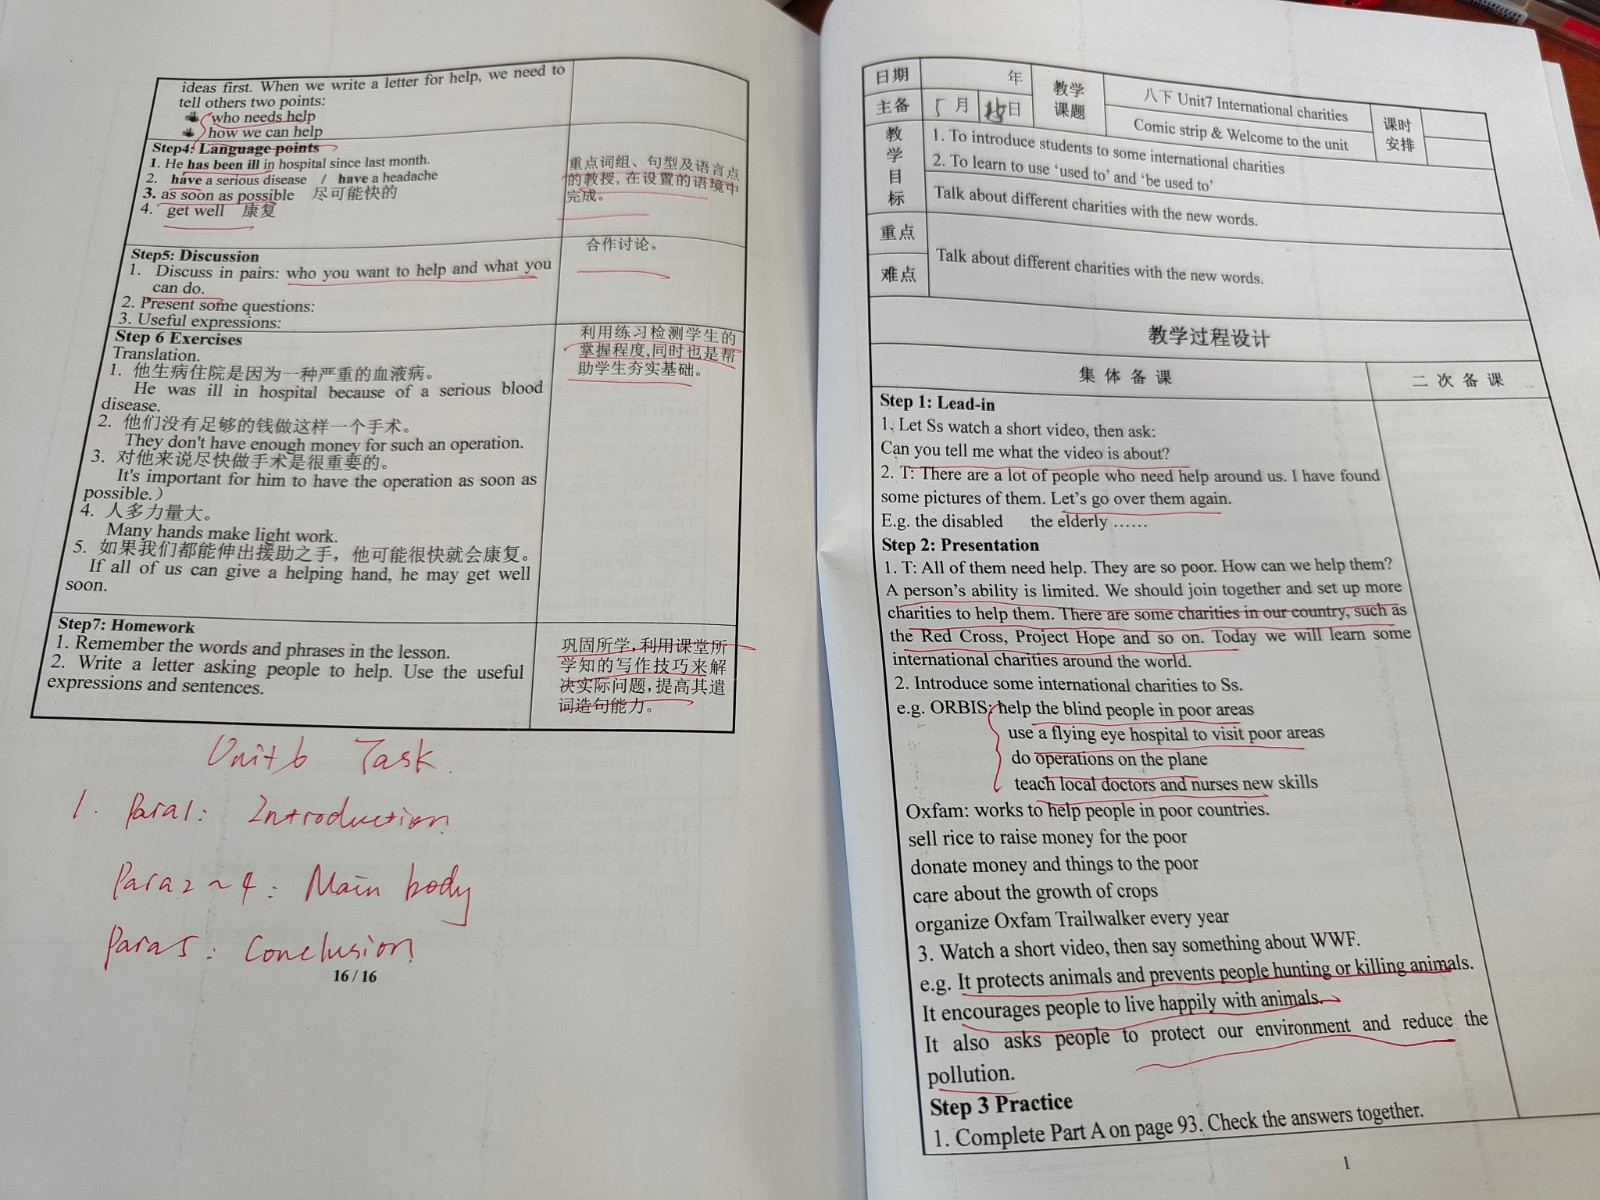 ideas first. When we write a letter for help, we need to
tell others two points:
who needs help
how we can help
Step4: Language points
1. He has been ill in hospital since last month.
2. have a serious disease / have a headache
3. as soon as possible 尽可能快的
4. get well 康复
重点词组、句型及语言点
的教授,在设置的语境中
完成。
Step5: Discussion
1. Discuss in pairs: who you want to help and what you
can do.
2. Present some questions:
3. Useful expressions:
合作讨论。
Step 6 Exercises
Translation.
1. 他生病住院是因为一种严重的血液病。
He was ill in hospital because of a serious blood
disease.
2. 他们没有足够的钱做这样一个手术。
They don't have enough money for such an operation.
3. 对他来说尽快做手术是很重要的。
It's important for him to have the operation as soon as
possible.）
4. 人多力量大。
Many hands make light work.
5. 如果我们都能伸出援助之手，他可能很快就会康复。
If all of us can give a helping hand, he may get well
soon.
利用练习检测学生的
掌握程度,同时也是帮
助学生夯实基础。
Step7: Homework
1. Remember the words and phrases in the lesson.
2. Write a letter asking people to help. Use the useful
expressions and sentences.
巩固所学,利用课堂所
学知的写作技巧来解
决实际问题,提高其遣
词造句能力。
Unit 6 Task.
1. Para1: Introduction
Para2~4: Main body
Para5: Conclusion
16 / 16
日期 年
主备 5 月 日
教学
课题
八下 Unit7 International charities
Comic strip & Welcome to the unit
课时
安排
教
学
目
标
1. To introduce students to some international charities
2. To learn to use ‘used to’ and ‘be used to’
Talk about different charities with the new words.
重点
难点
Talk about different charities with the new words.
教学过程设计
集 体 备 课
二 次 备 课
Step 1: Lead-in
1. Let Ss watch a short video, then ask:
Can you tell me what the video is about?
2. T: There are a lot of people who need help around us. I have found
some pictures of them. Let’s go over them again.
E.g. the disabled the elderly ……
Step 2: Presentation
1. T: All of them need help. They are so poor. How can we help them?
A person’s ability is limited. We should join together and set up more
charities to help them. There are some charities in our country, such as
the Red Cross, Project Hope and so on. Today we will learn some
international charities around the world.
2. Introduce some international charities to Ss.
e.g. ORBIS: help the blind people in poor areas
use a flying eye hospital to visit poor areas
do operations on the plane
teach local doctors and nurses new skills
Oxfam: works to help people in poor countries.
sell rice to raise money for the poor
donate money and things to the poor
care about the growth of crops
organize Oxfam Trailwalker every year
3. Watch a short video, then say something about WWF.
e.g. It protects animals and prevents people hunting or killing animals.
It encourages people to live happily with animals.
It also asks people to protect our environment and reduce the
pollution.
Step 3 Practice
1. Complete Part A on page 93. Check the answers together.
1